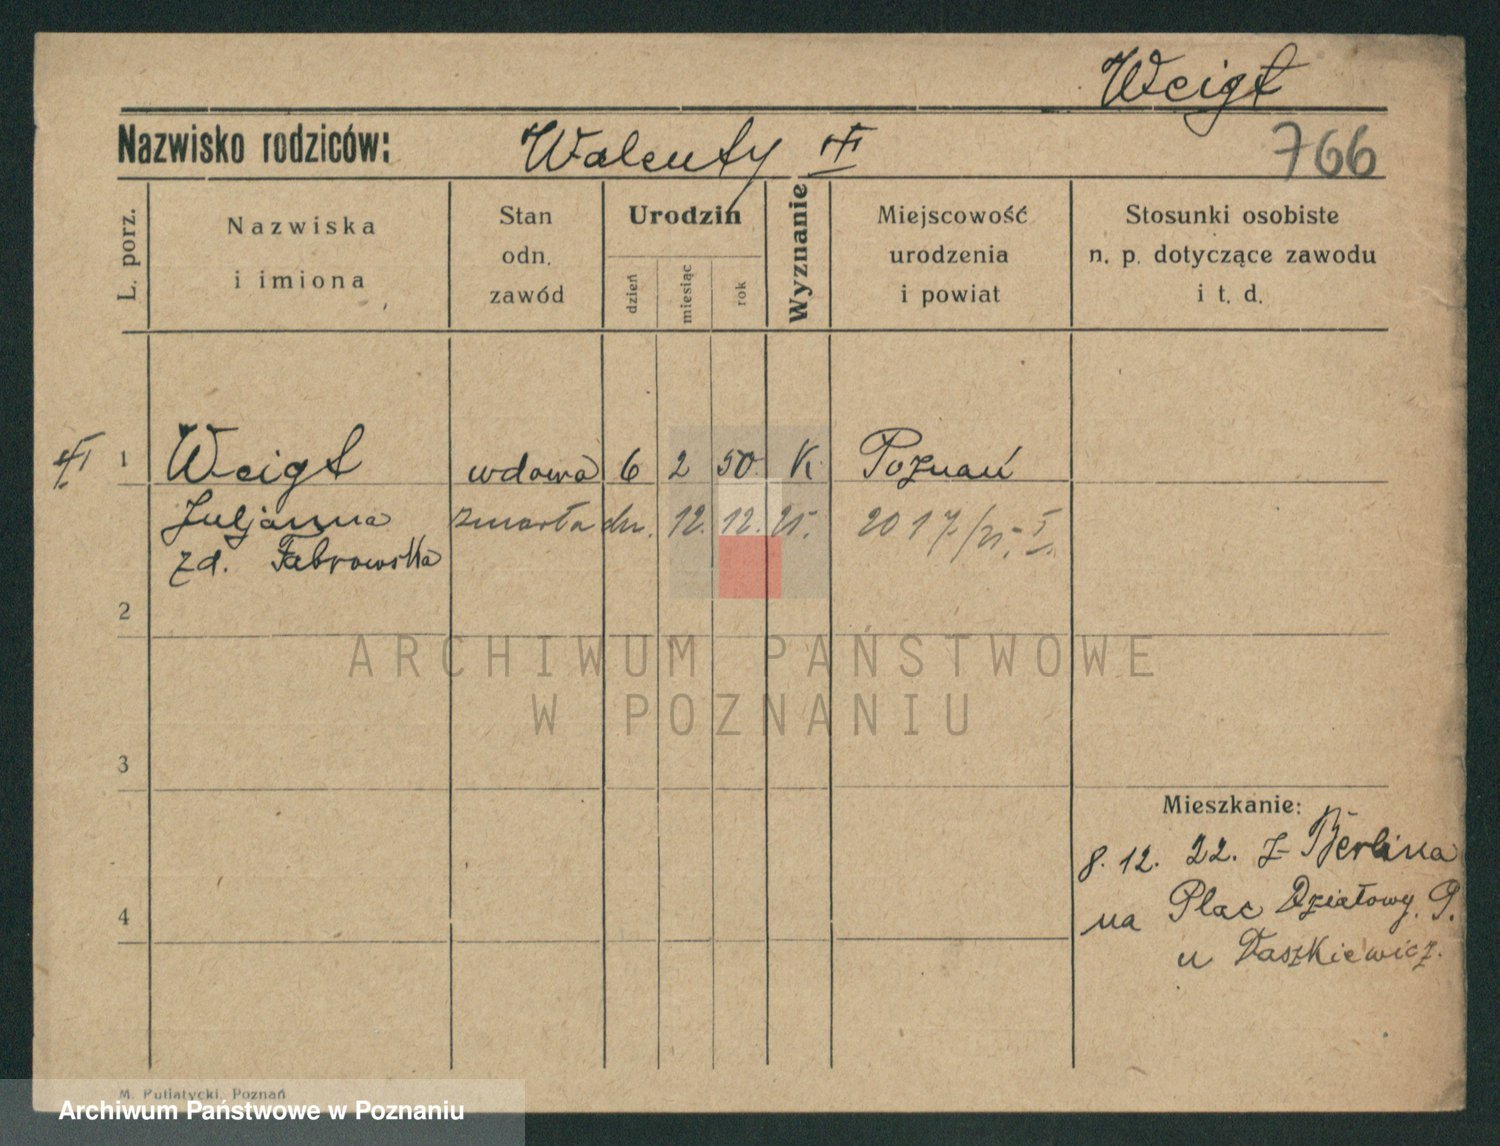 Weigt
Nazwisko rodziców: Walenty
766
L. porz.
Nazwiska
i imiona
Stan
odn.
zawód
Urodzin
dzień
miesiąc
rok
Wyznanie
Miejscowość
urodzenia
i powiat
Stosunki osobiste
n. p. dotyczące zawodu
i t. d.
1 Weigt wdowa 6 2 50. K. Poznań
Juljanna zmarła dn. 12. 12. 25. 2017/25. I
zd. Fabrowska
2
ARCHIWUM PAŃSTWOWE
W POZNANIU
3
Mieszkanie:
8. 12. 22. z Berlina
4
na Plac Działowy. P.
u Daszkiewicz.
M. Putiatycki, Poznań
Archiwum Państwowe w Poznaniu